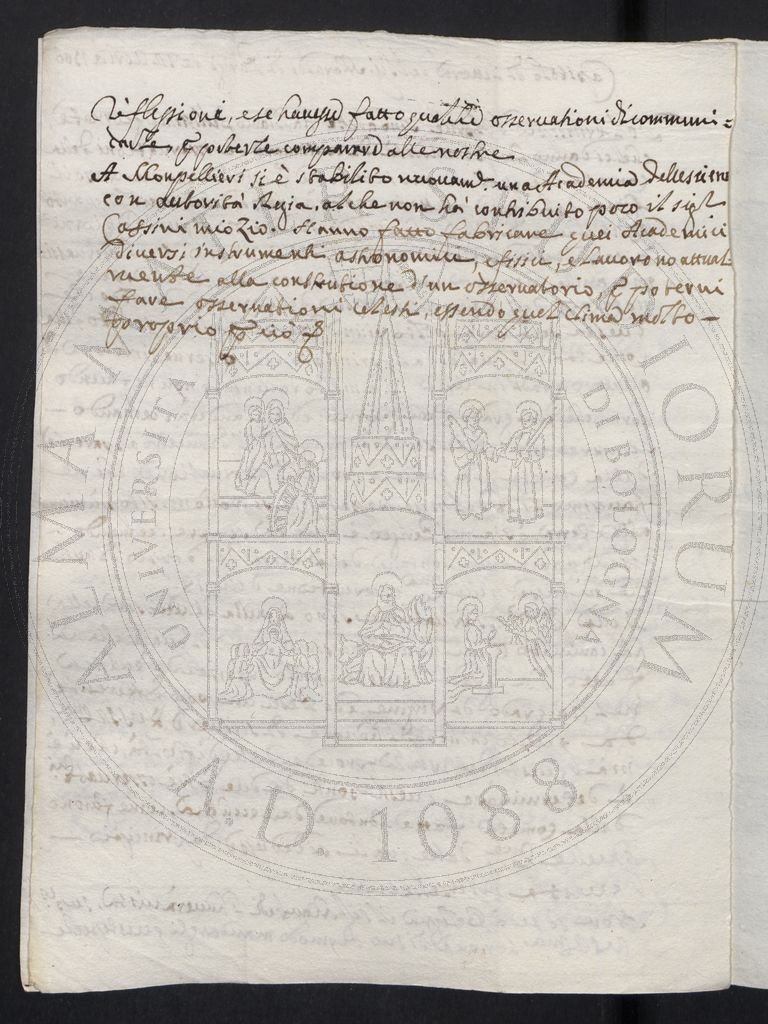 reflessioni, e se havesse fatto qualche osservationi di communi=
carle p poterle comparare alle nostre
A Monpellieri si è stabilito nuovam.e una Academia delle scienze
con autorità Regia, al che non ha contribuito poco il sig.r
Cassini mio zio. Stanno fatto fabricare quei Academici
diversi instrumenti astronomici, e fisici, e lavorono attual-
mente alla constitutione d'un osservatorio p poterui
fare osservationi celesti, essendo quel clima molto -
proprio p ciò
ALMA MATER STUDIORUM
UNIVERSITA DI BOLOGNA
A.D. 1088